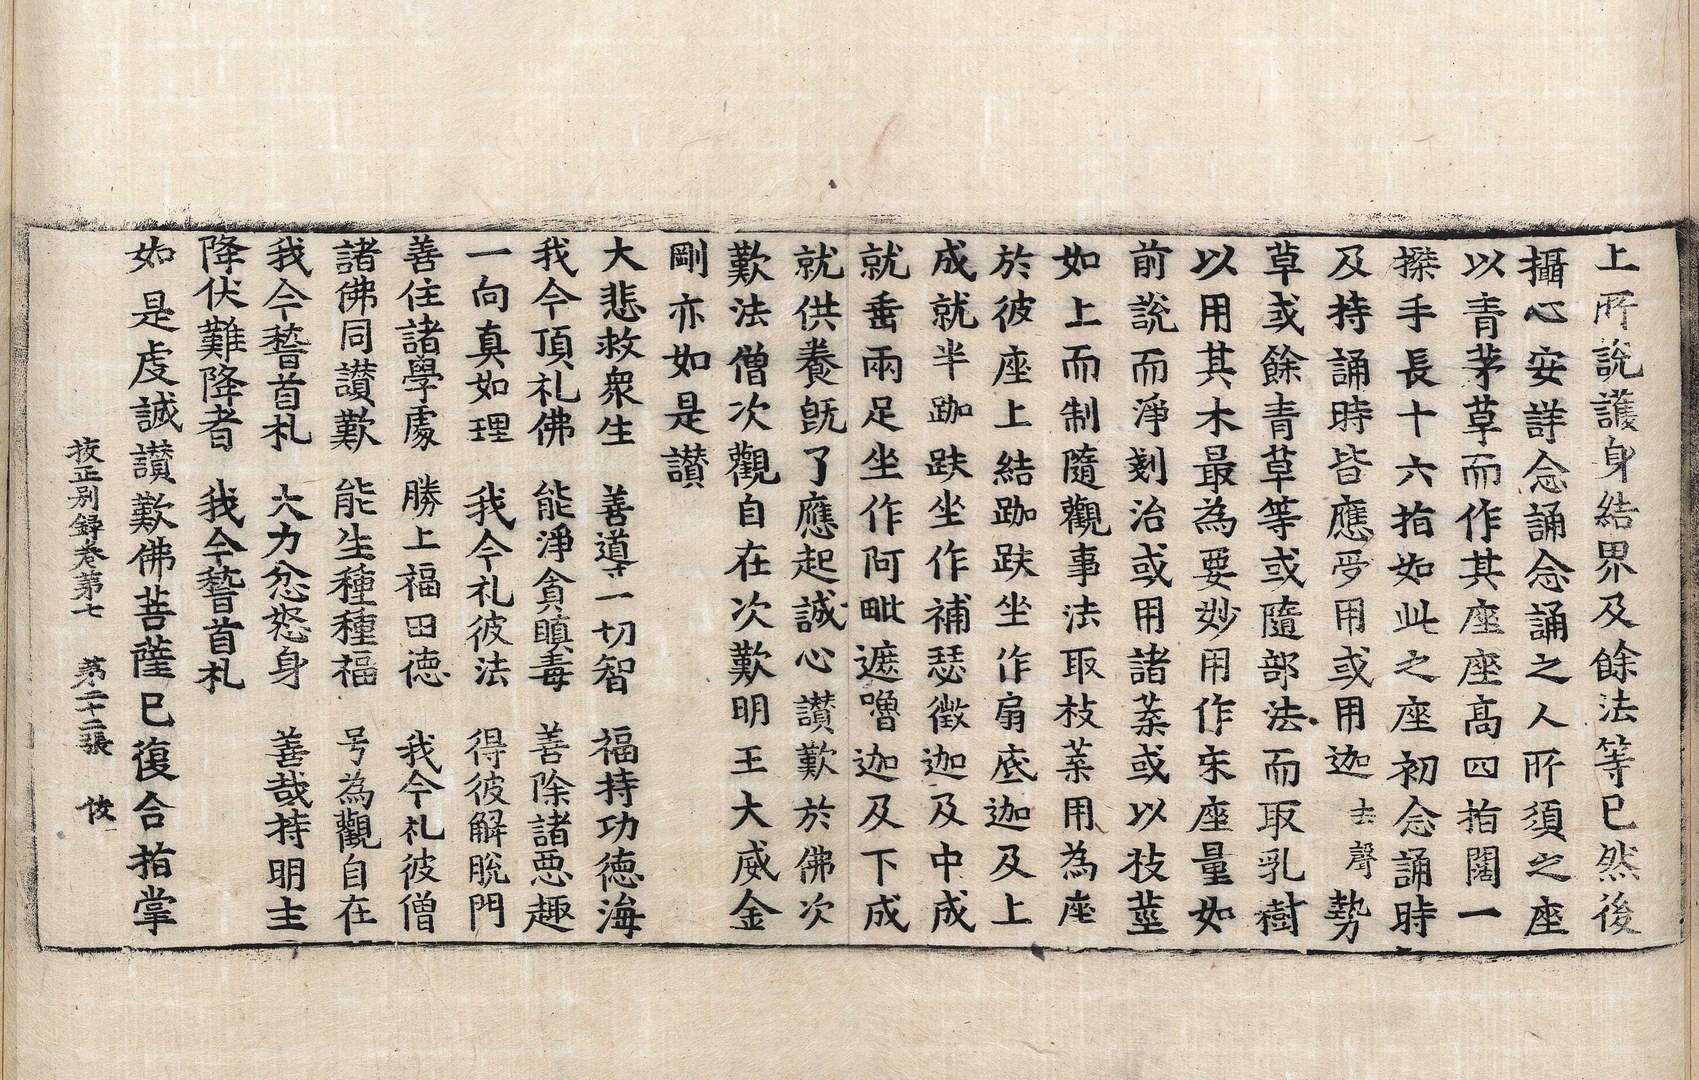 上所說護身結界及餘法等已然後
攝心安詳念誦念誦之人所須之座
以青茅草而作其座座高四指闊一
搩手長十六指如此之座初念誦時
及持誦時皆應受用或用迦去聲勢
草或餘青草等或隨部法而取乳樹
以用其木最為要妙用作床座量如
前說而淨剗治或用諸葉或以枝莖
如上而制隨觀事法取枝葉用為座
於彼座上結跏趺坐作扇底迦及上
成就半跏趺坐作補瑟徵迦及中成
就垂兩足坐作阿毗遮嚕迦及下成
就供養旣了應起誠心讃歎於佛次
歎法僧次觀自在次歎明王大威金
剛亦如是讃
大悲救衆生　善導一切智　福持功德海
我今頂礼佛　能淨貪瞋毒　善除諸惡趣
一向真如理　我今礼彼法　得彼解脫門
善住諸學處　勝上福田德　我今礼彼僧
諸佛同讃歎　能生種種福　号為觀自在
我今䭬首礼　大力忿怒身　善哉持明主
降伏難降者　我今䭬首礼
如是虔誠讃歎佛菩薩已復合指掌
挍正别錄卷第七　第二十二張　俊